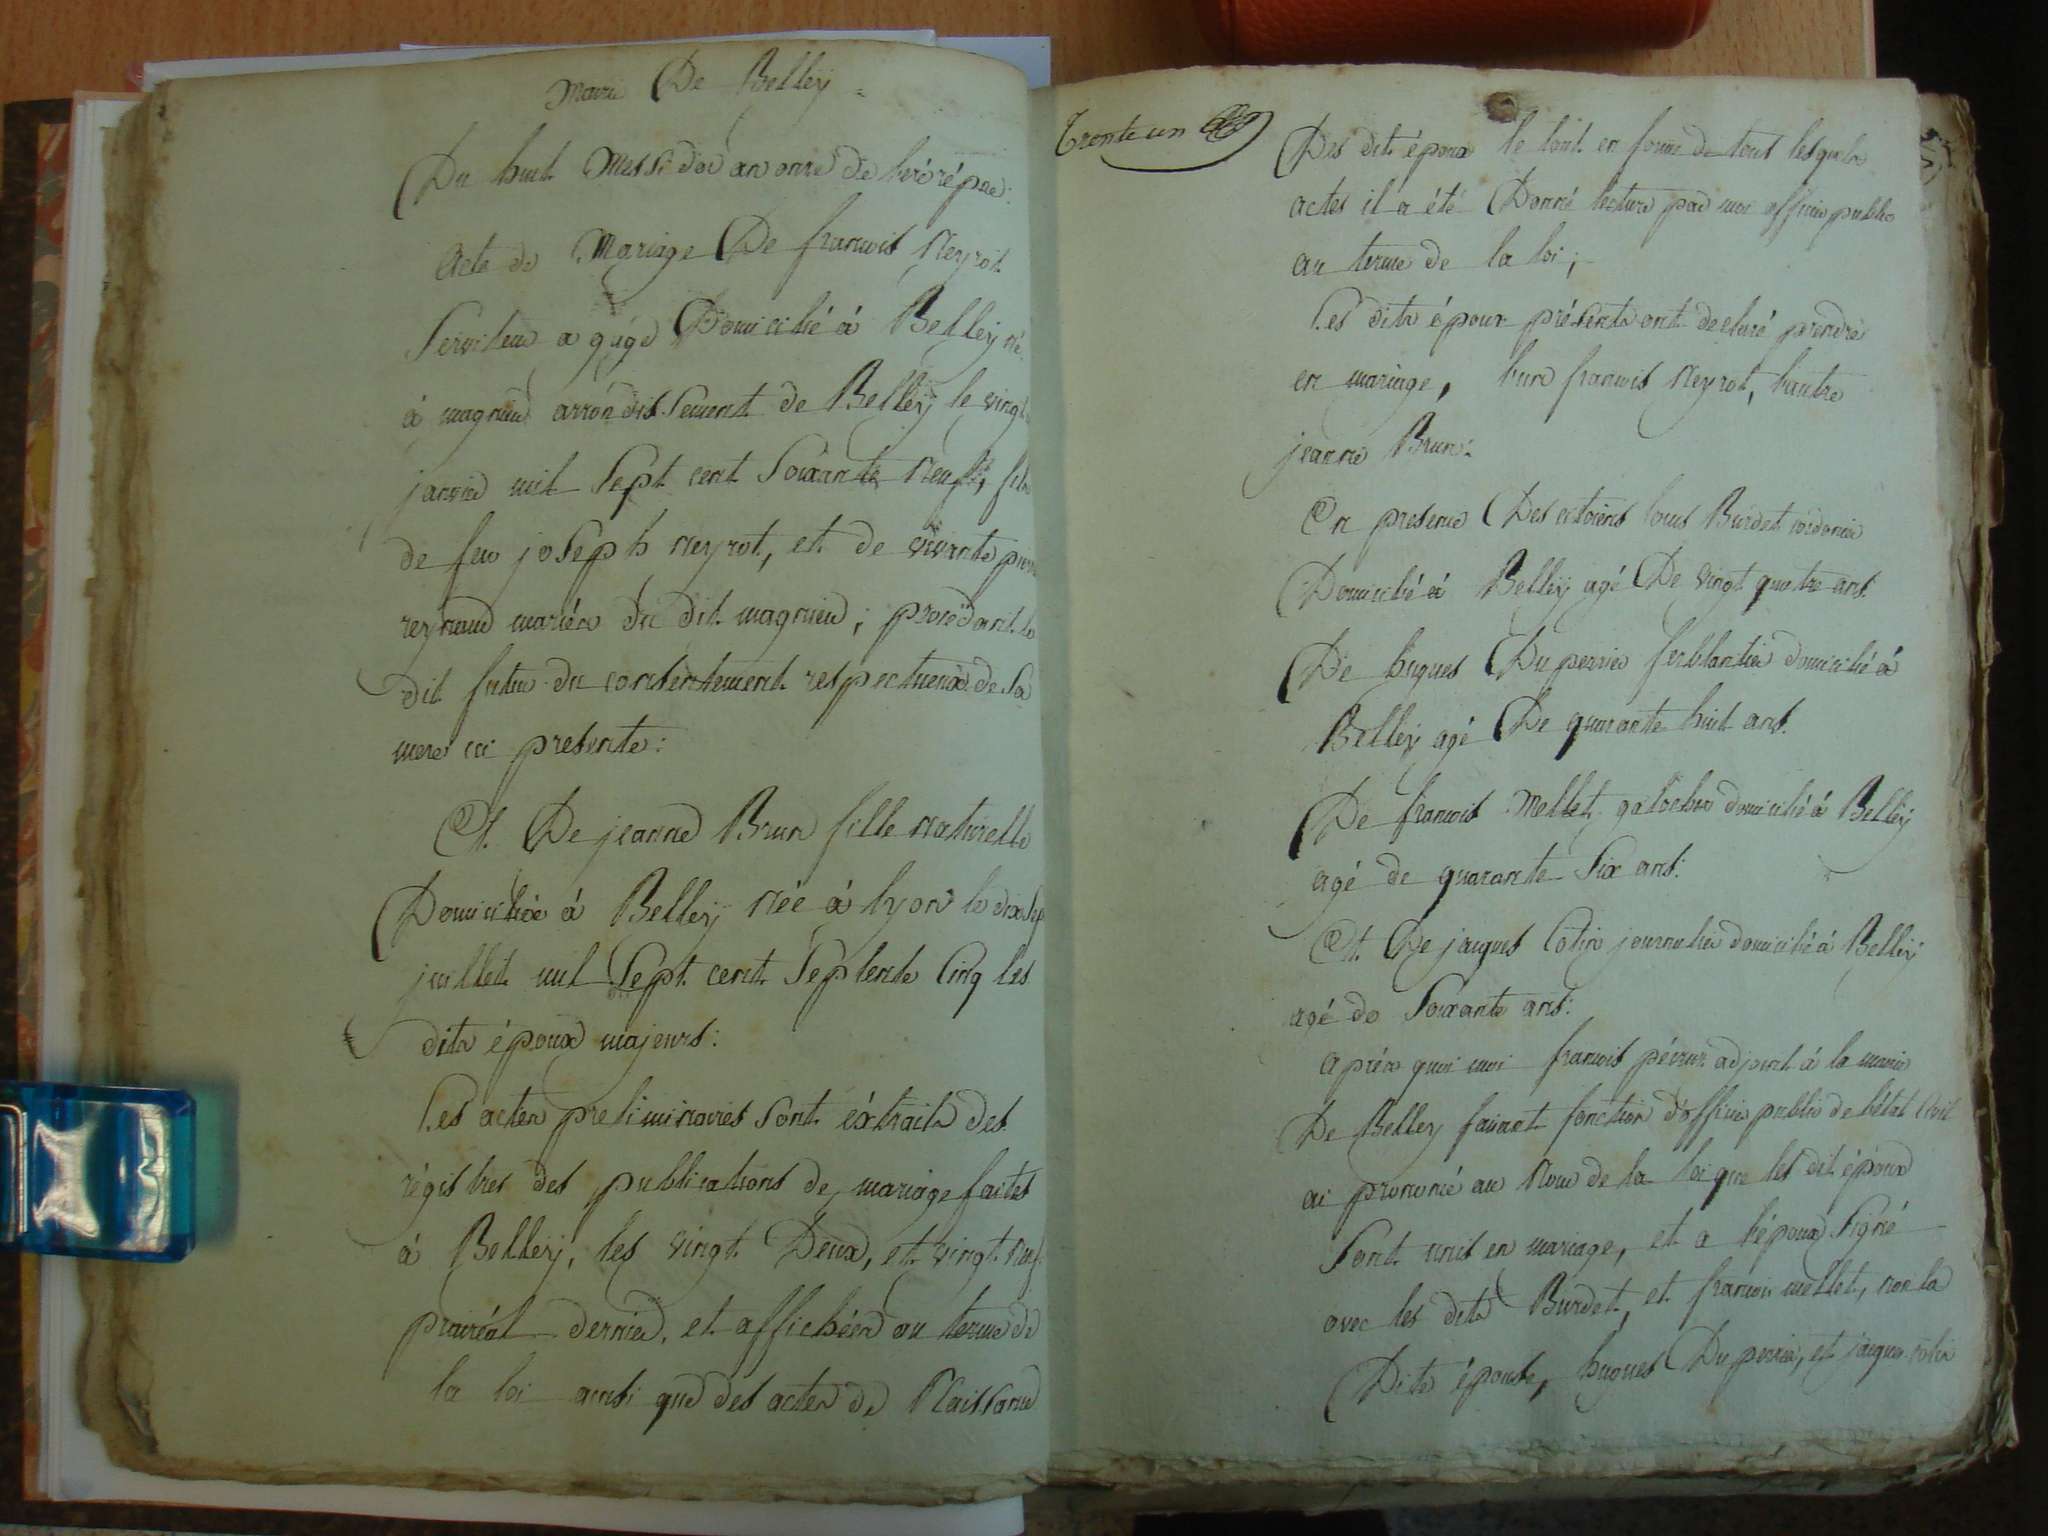 Mairie De Belleÿ =
Du huit Messidor an onze de l'ère rép.ne:
Acte de Mariage De francois Neyrot
Serviteur a gage Domicilié à Belleÿ né
à magnieu arrondissement de Belleÿ le vingt
janvier mil Sept cent Soixante Neuf, fils
de feu joSeph neyrot, et de vivante
reynaud mariés du dit magnieu; procédant le
dit futur du consentement respectueux de Sa
mere ici presente:
Et De jeanne Brun fille naturelle
Domiciliée à Belleÿ née à lyon le dix Sep
juillet mil Sept cent Septente Cinq les
dits époux majeurs:
Les actes preliminaires Sont éxtraits des
régistres des publications de mariage faites
à Belleÿ, les vingt Deux, et vingt neuf
prairéal dernier, et affichées au terme de
la loi ainsi que des actes de Naissance
Trente un
Des dit époux le tout en forme de tous lesquels
actes il a été Donné lecture par moi officier public
au terme de la loi;
Les dits époux présents ont declaré prendre
en mariage, l'un francois Neyrot, l'autre
jeanne Brun:
En presence Des citoiens louis Burdet cordonier
Domicilié à Belleÿ agé De vingt quatre ans
De hugues Du perrier ferblantier domicilié à
Belleÿ agé De quarante huit ans.
De francois Mellet galochier domicilié à Belleÿ
agé de quarante Six ans:
Et De jaques Cotin journalier domicilié à Belleÿ
agé de Soixante ans:
après quoi moi francois adjoint à la mairie
De Belley faisant fonction d'officier public de l'état Civil
ai prononcé au Nom de la loi que les dit époux
Sont unis en mariage, et a l'époux Signé
avec les dits Burdet, et francois mellet, non la
Dite épouse, hugues Du perrier, et jaques Cotin